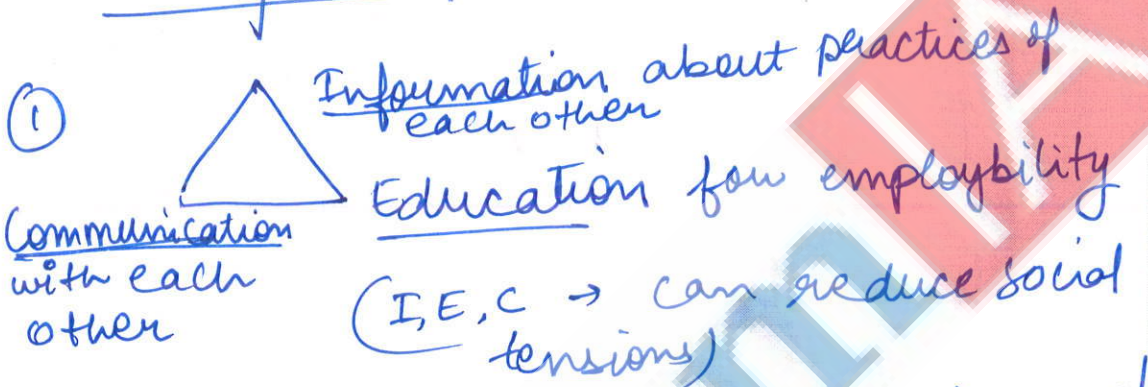 ①
Information about practices of
each other
Education for employbility
Communication
with each
other
(I, E, C → can reduce social
tensions)